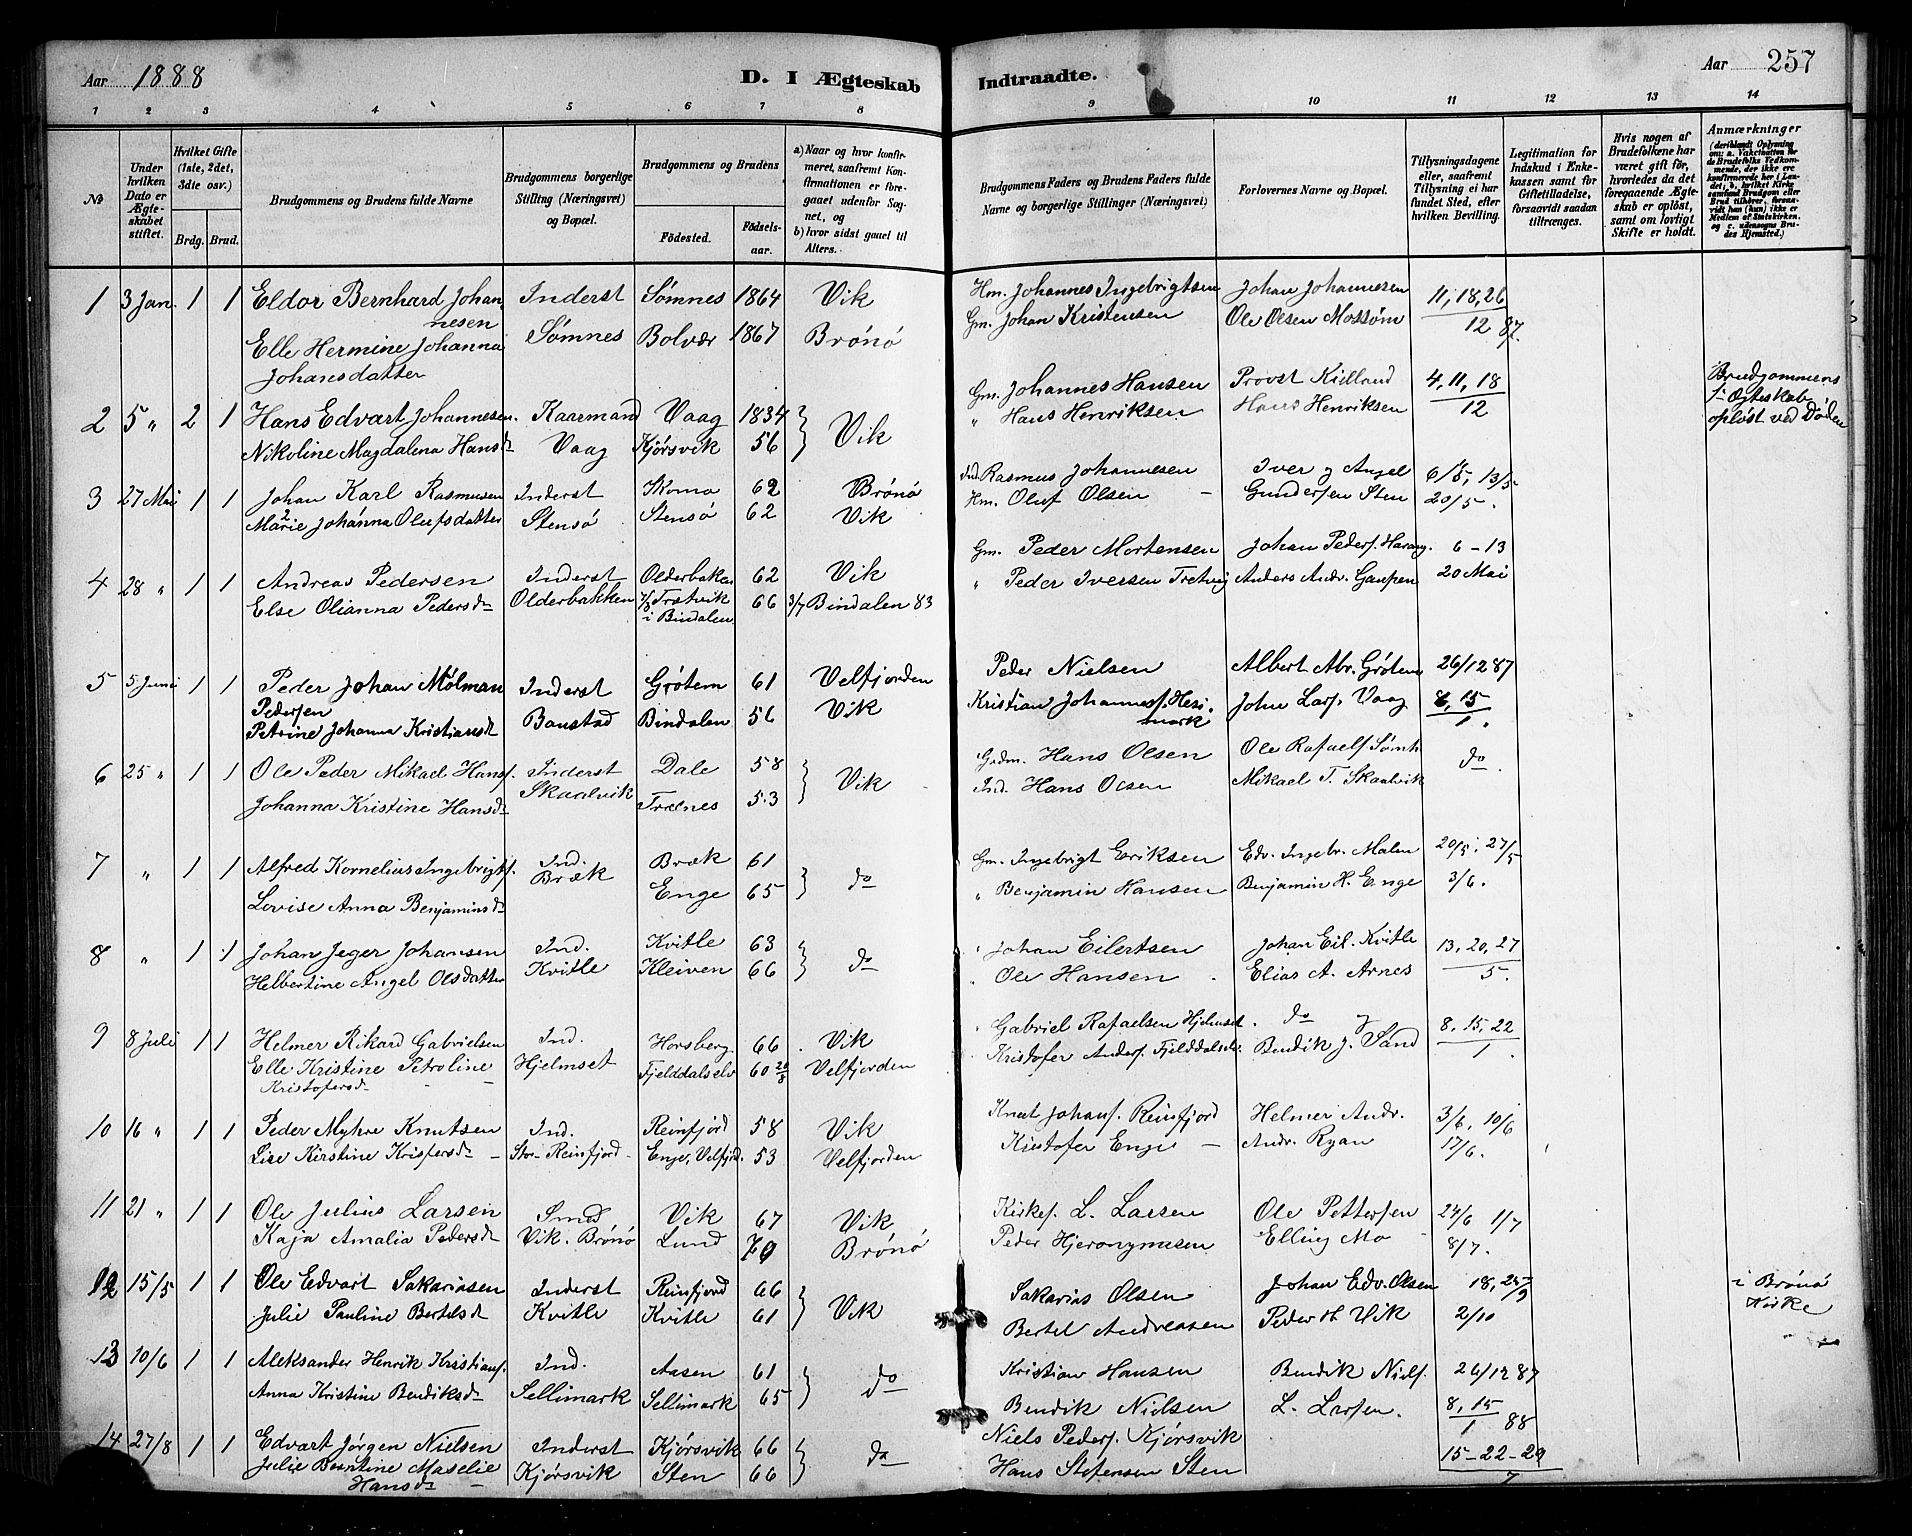 Aar 1888
D. I Ægteskab
Indtraadte.
Aar 257
1 2 3 4 5 6 7 8 9 10 11 12 13 14
No
Under hvilken Dato er Ægteskabet stiftet.
Hvilket Gifte (1ste, 2det, 3die osv.)
Brdg. Brud.
Brudgommens og Brudens fulde Navne
Brudgommens borgerlige Stilling (Næringsvei) og Bopæl.
Brudgommens og Brudens
Fødested.
Fødselsaar.
a) Naar og hvor konfirmeret, saafremt Konfirmationen er foregaaet udenfor Sognet, og
b) hvor sidst gaaet til Alters.
Brudgommens Faders og Brudens Faders fulde Navne og borgerlige Stillinger (Næringsvei)
Forlovernes Navne og Bopæl.
Tillysningsdagene eller, saafremt Tillysning ei har fundet Sted, efter hvilken Bevilling.
Legitimation for Indskud i Enkekassen samt for Giftetilladelse, forsaavidt saadan tiltrænges.
Hvis nogen af Brudefolkene har været gift før, hvorledes da det foregaaende Ægteskab er opløst, samt om lovligt Skifte er holdt.
Anmærkninger (deriblandt Oplysning om: a. Vakcination for de Brudefolks Vedkommende, der ikke ere konfirmerede her i Landet; b. hvilket Kirkesamfund Brudgom eller Brud tilhører, forsaavidt han (hun) ikke er Medlem af Statskirken. og c. udensogns Brudes Hjemsted.)
1 3 Jan. 1 1 Eldor Bernhard Johan Inderst Sømnes 1864 Vik Hm. Johannes Ingebrigtsen Johan Johannesen 11, 18, 26
nesen Sømnes Bolvær 1867 Brønø Gm. Johan Kristensen Ole Olsen Mossøm 12 87.
Elle Hermine Johanna
Johansdatter
2 5 " 2 1 Hans Edvart Johannesen. Kaarmand Vaag 1834 } Vik Gm. Johannes Hansen Provst Kielland 4, 11, 18 Brudgommens
Nikoline Magdalena Hansd Vaag Kjørsvik 56 " Hans Henriksen Hans Henriksen 12 1. Ægteskab
opløst ved Døden
3 27 Mai 1 1 Johan Karl Rasmussen Inderst Skomo 62 Brønø Ind. Rasmus Johannesen Iver og Angel 6/5, 13/5
Marie Johanna Olufsdatter Stensø Stensø 62 Vik Hm. Oluf Olsen - Gundersen Sten 20/5.
4 28 " 1 1 Andreas Pedersen Inderst Olderbakn 62 Vik Gm. Peder Mortensen Johan Peders. Harang. 6 - 13
Else Olianna Pedersd Olderbakken Trætvik 66 3/7 Bindalen 83 " Peder Iversen Tretvig Anders Andr. Gaupen 20 Mai
i Bindalen
5 5 Juni 1 1 Peder Johan Mølman Inderst Grøtem 61 Velfjorden Peder Nielsen Albert Abr. Grøtem 26/12 87
Pedersen
Petrine Johanna Kristiansd Baustad Bindalen 56 Vik Kristian Johannes. Heri- John Lars. Vaag 8, 15
mark 1.
6 25 " 1 1 Ole Peder Mikael Hans. Inderst Dale 58 } Vik Grdm. Hans Olsen Ole Rafaels. Sømh do.
Johanna Kristine Hansd Skaalvik Trælnes 53 Ind. Hans Olsen Mikael T. Skaalvik
7 " 1 1 Alfred Kornelius Ingebrigts. Ind. Bræk 61 } do Gm. Ingebrigt Eriksen Edv. Ingebr. Malen 20/5, 27/5
Lovise Anna Benjaminsd Bræk Enge 65 " Benjamin Hansen Benjamin H. Enge 3/6.
8 " 1 1 Johan Jeger Johansen Ind. Kvitle 63 } do " Johan Eilertsen Johan Eil. Kvitle 13, 20, 27
Helbertine Angel Olsdatter Kvitle Kleiven 66 " Ole Hansen Elias A. Arnes 5.
9 8 Juli 1 1 Helmer Rikard Gabrielsen Ind. Horsberg 66 Vik " Gabriel Rafaelsen Hjelmset do og 8, 15, 22
Elle Kristine Petroline Hjelmset Fjelddalselv 60 20/8 Velfjorden Kristofer Anders. Fjelddalselv. Bendik J. Sand 1
Kristofersd - -
10 16 " 1 1 Peder Myhre Knutsen Ind. Reinfjord 58 Vik Knut Johans. Reinfjord Helmer Andr. 3/6, 10/6
Lise Kirstine Kristfersd - Stor-Reinfjord- Enge, Velfjd. 53 Velfjorden Kristofer Enge - Andr. Ryan 17/6.
11 21 " 1 1 Ole Julius Larsen Smed Vik 67 Vik Kirkes. L. Larsen Ole Pettersen 24/6 1/7
Kaja Amalia Pedersd Vik. Brønø Lund 70 Brønø Peder Hjeronymasen Elling Mo - 8/7.
12 15/5 1 1 Ole Edvart Sakariasen Inderst Reinfjord 66 } Vik Sakarias Olsen Johan Edv. Olsen 18, 24/9 i Brønø
Julie Pauline Bertelsd Kvitle Kvitle 61 Bertel Andreasen Peder H Vik 2/10 Kirke
13 10/6 1 1 Aleksander Henrik Kristians. Ind. Aasen 61 } do Kristian Hansen Bendik Niels. 26/12 87
Anna Kristine Bendiksd Sellimark Sellimark 65 Bendik Nielsen L. Larsen. 8, 15
1 88
14 27/8 1 1 Edvart Jørgen Nielsen Inderst Kjørsvik 66 } do Niels Peders. Kjørsvik 15-22-29
Julie Berntine Maselie Kjørsvik Sten 66 Hans Stefensen Sten 7
Hansd -